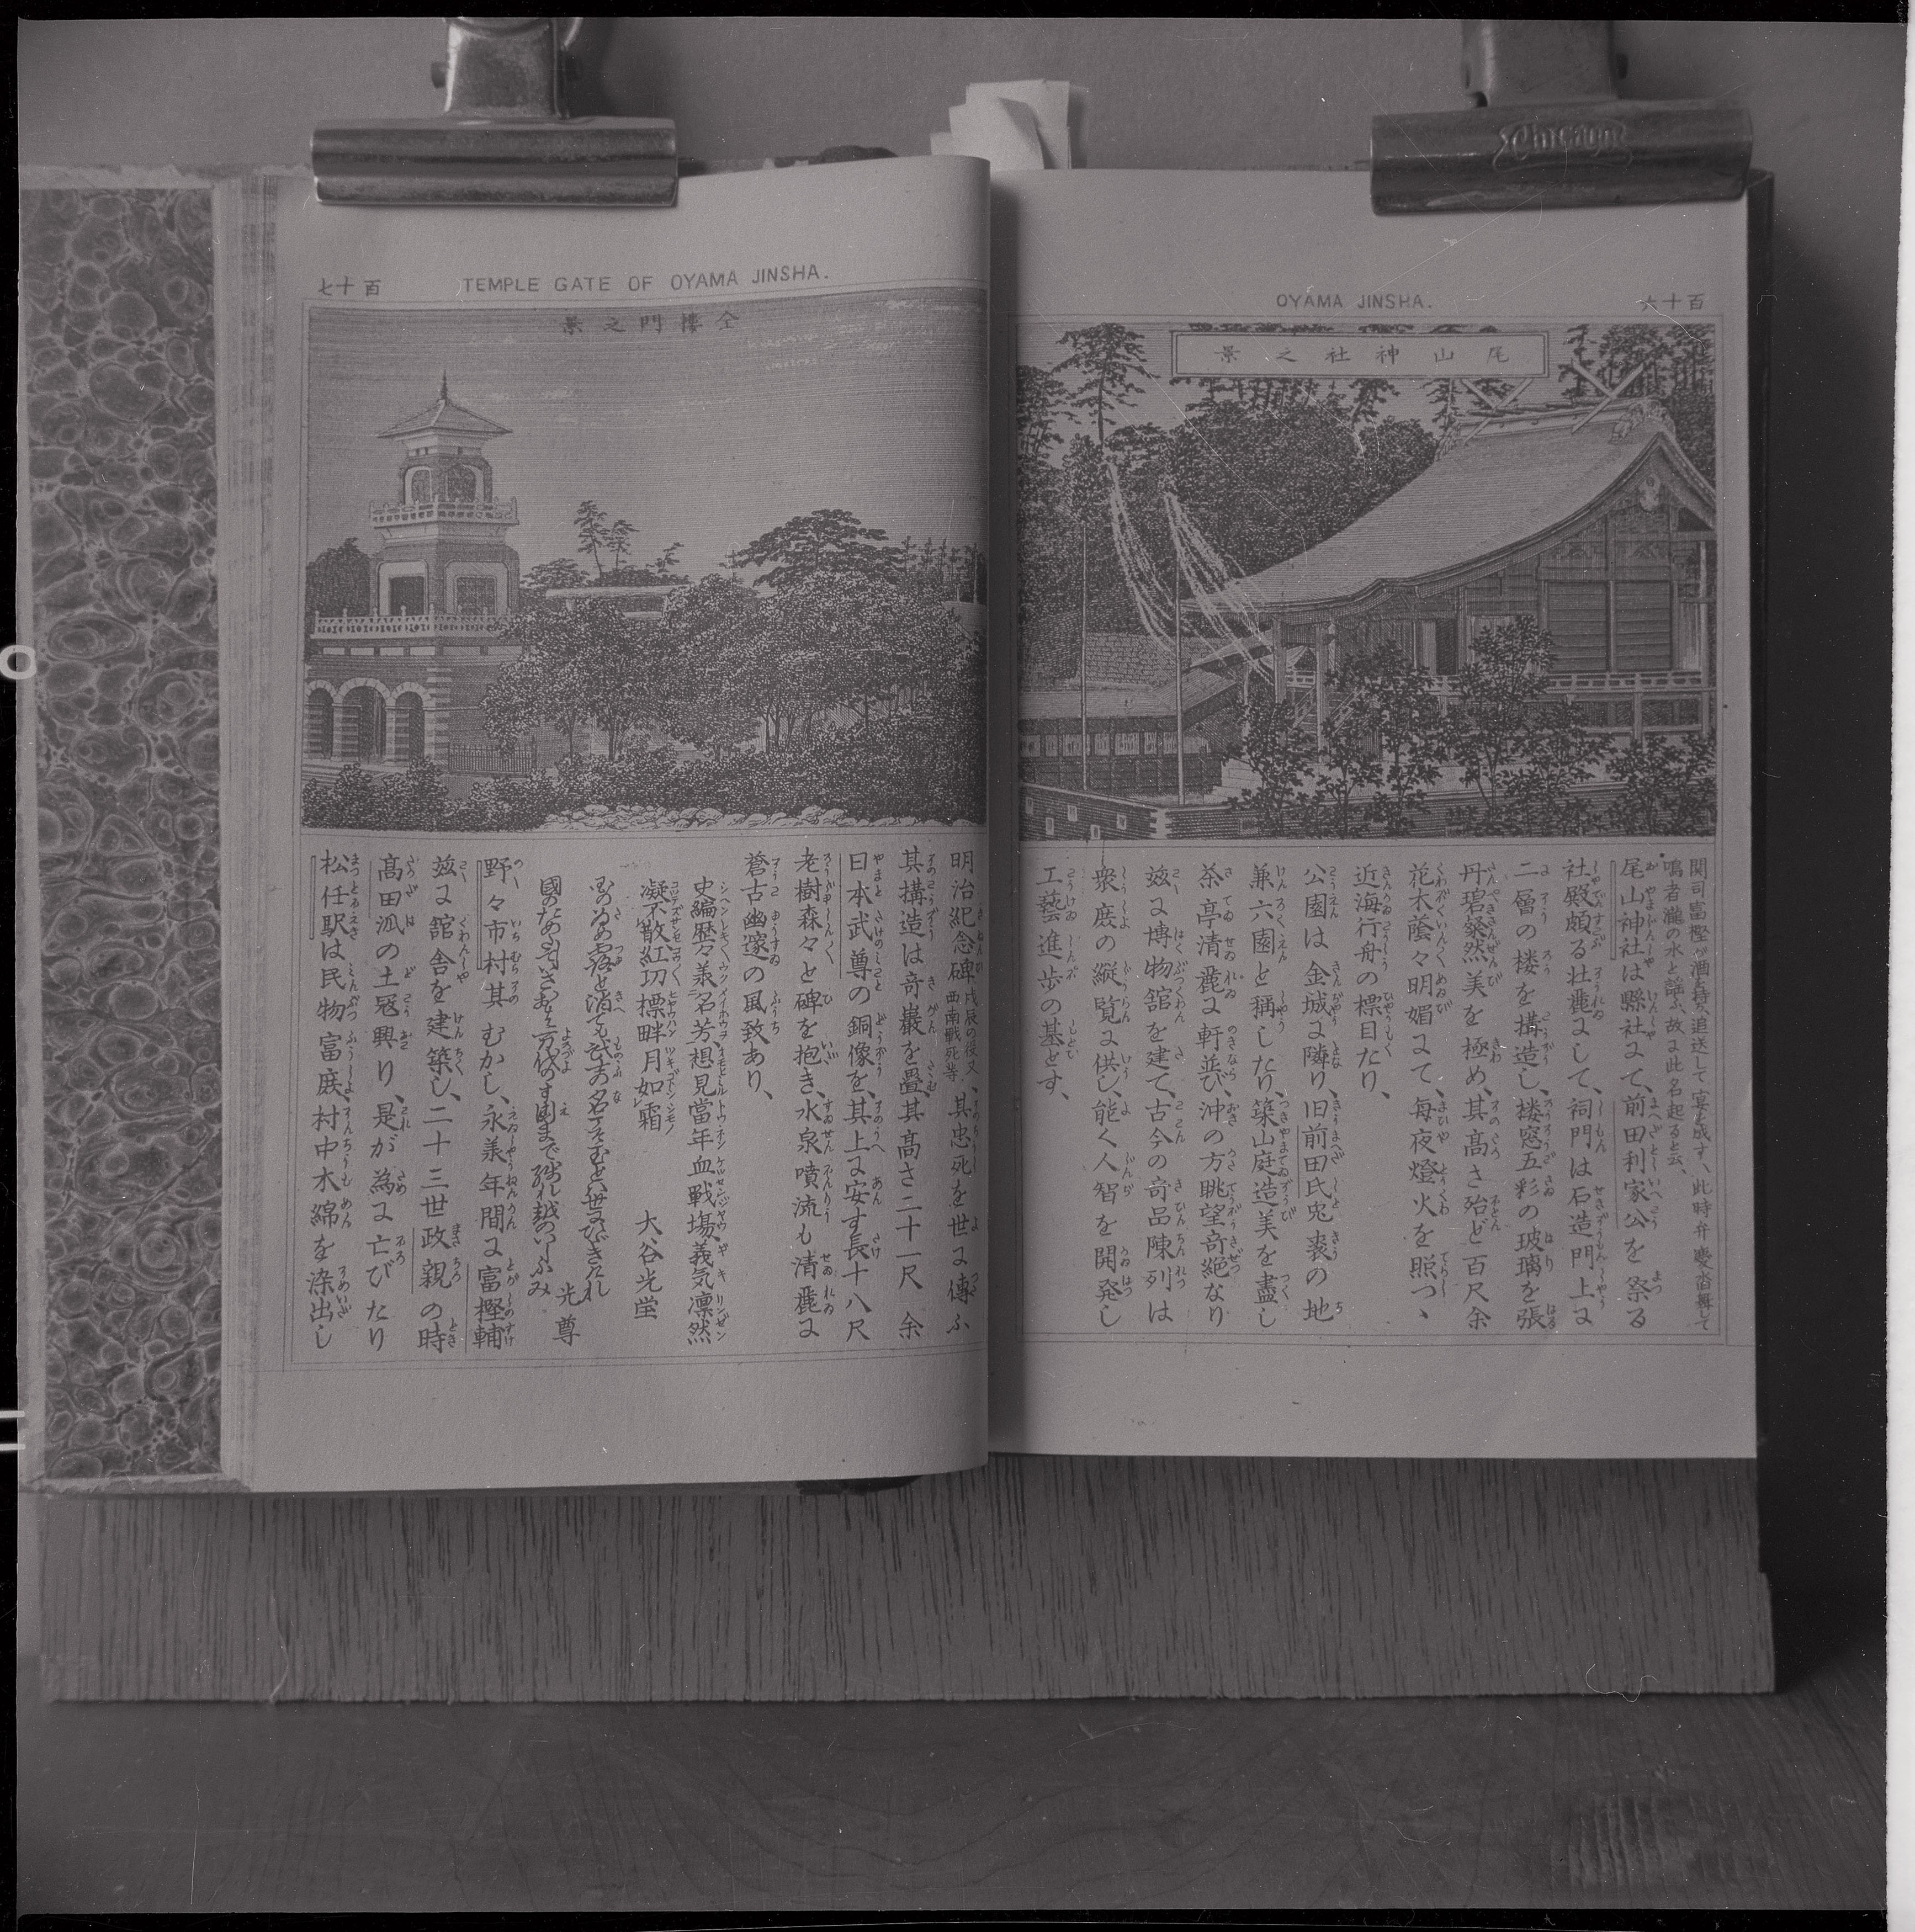 百十六
OYAMA JINSHA.
尾山神社之景
関司富樫が酒を持、追送して宴を成す、此時弁慶沓舞して
鳴者瀧の水と謡ふ、故に此名起ると云、
尾山神社は縣社にて、前田利家公を祭る
社殿頗る壮麗にして、祠門は石造門上に
二層の楼を搆造し、楼窓五彩の玻璃を張
丹碧粲然美を極め、其髙さ殆ど百尺余
花木蔭々明媚にて、毎夜燈火を照つゝ
近海行舟の標目たり、
公園は金城に隣り、旧前田氏兎裘の地
兼六園と稱したり、築山庭造美を盡し
茶亭清麗に軒並び、沖の方眺望奇絶なり
玆に博物舘を建て、古今の奇品陳列は
衆庻の縦覧に供し、能く人智を開発し
工藝進歩の基とす、
百十七
TEMPLE GATE OF OYAMA JINSHA.
仝樓門之景
明治紀念碑戊辰の後又西南戰死等、其忠死を世に傳ふ
其搆造は奇巖を疊、其髙さ二十一尺余
日本武尊の銅像を、其上に安す長十八尺
老樹森々と碑を抱き、水泉噴流も清麗に
蒼古幽邃の風致あり、
史編歴々義名芳想見當年血戰塲、義気凛然
凝不散紅切標畔月如霜
大谷光瑩
光尊
野々市村其むかし、永美年間に富樫輔
玆に舘舎を建築し、二十三世政親の時
髙田派の土冦興り、是が為に亡びたり
松任駅は民物富庻、村中木綿を染出し